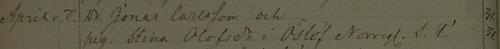 April 7. Dr. Jonas Carlsson och
pig. Stina Olofsdr i Oslöf Norreg. S. T.